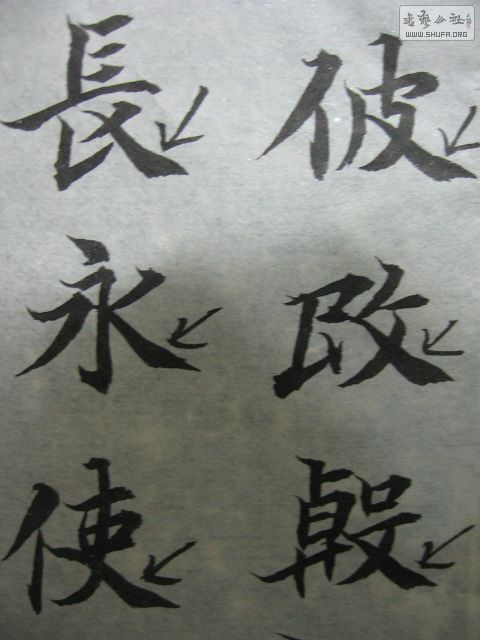 書藝公社
WWW.SHUFA.ORG
彼改
長永使